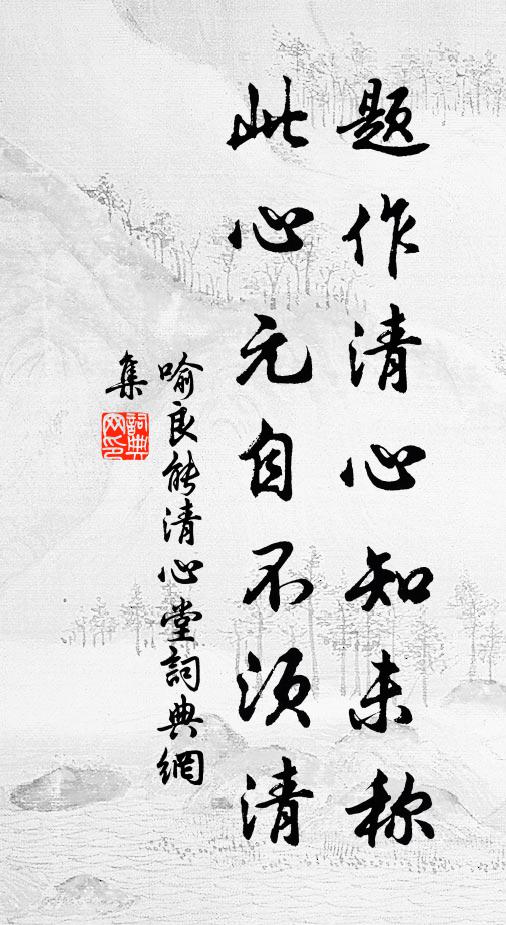 题作清心知未称
此心元自不须清
喻良能清心堂詞典網
集
詞典网印